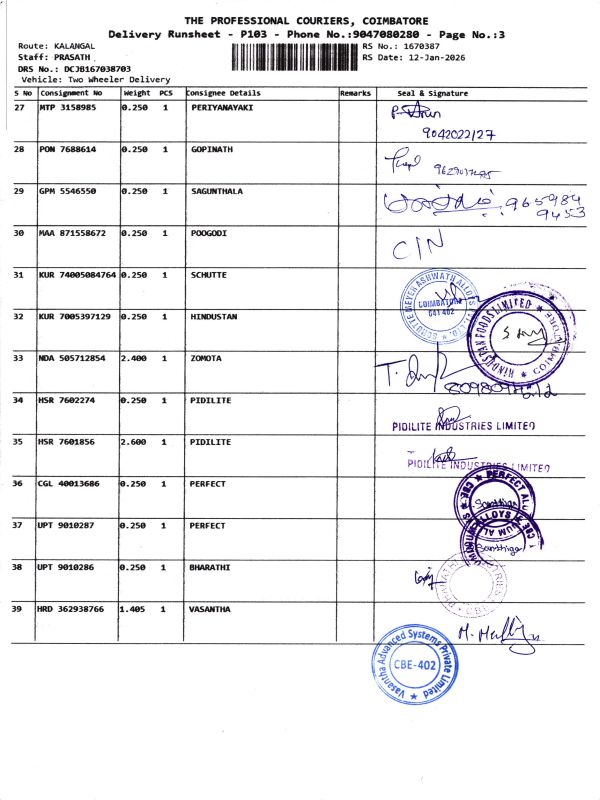 THE PROFESSIONAL COURIERS, COIMBATORE
Delivery Runsheet - P103 - Phone No.:9047080280 - Page No.:3
Route: KALANGAL RS No.: 1670387
Staff: PRASATH RS Date: 12-Jan-2026
DRS No.: DCJB167038703
Vehicle: Two Wheeler Delivery
S No Consignment No Weight PCS Consignee Details Remarks Seal & Signature
27 MTP 3158985 0.250 1 PERIYANAYAKI
9042022127
28 PON 7688614 0.250 1 GOPINATH
29 GPM 5546550 0.250 1 SAGUNTHALA
965984
9453
30 MAA 871558672 0.250 1 POOGODI
CIN
31 KUR 74005084764 0.250 1 SCHUTTE
COIMBATORE
641 402
32 KUR 7005397129 0.250 1 HINDUSTAN
HINDUSTAN FOODS LIMITED
COIMBATORE
33 NDA 505712854 2.400 1 ZOMOTA
34 HSR 7602274 0.250 1 PIDILITE
PIDILITE INDUSTRIES LIMITED
35 HSR 7601856 2.600 1 PIDILITE
PIDILITE INDUSTRIES LIMITED
36 CGL 40013686 0.250 1 PERFECT
37 UPT 9010287 0.250 1 PERFECT
38 UPT 9010286 0.250 1 BHARATHI
39 HRD 362938766 1.405 1 VASANTHA
Vasantha Advanced Systems Private Limited
CBE-402